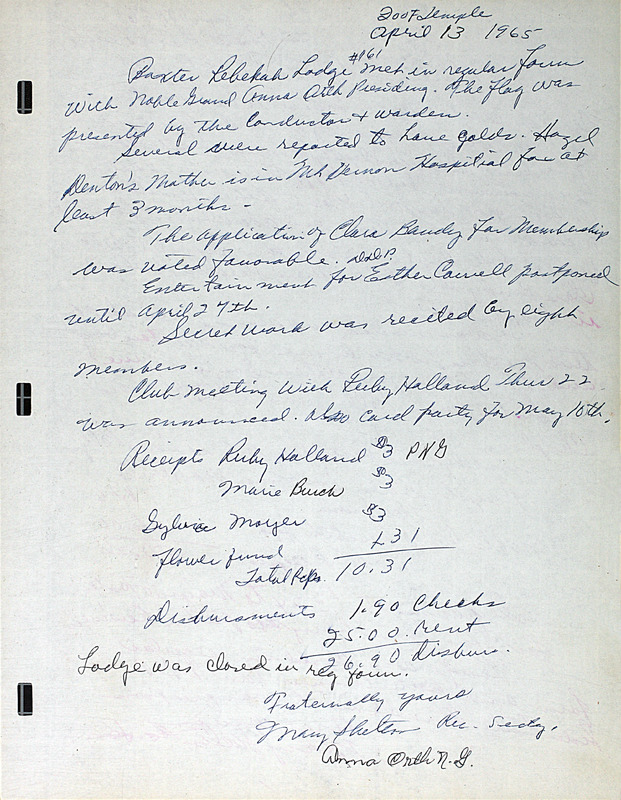 IOOF Temple
April 13 1965
Baxter Rebekah Lodge #161 met in regular form
with Noble Grand Anna Orth Presiding. The flag was
presented by the Conductor & warden.
Several were reported to have colds. Hazel
Denton's Mother is in Mt Vernon Hospitial for at
least 3 months -
The application of Clara Bandy for Membership
was voted favorable.
Entertainment for Esther Correll postponed
until April 27th.
Secret work was recited by eight
members.
Club meeting With Ruby Holland Thur 22
was announced. Also card party for May 10th.
Receipts Ruby Holland $3 PNG
Marie Burch $3
Sylvia Moyer $3
Flower fund 1.31
Total Rcpts. 10.31
Disbursments 1.90 Checks
25.00 rent
26.90 Disburs.
Lodge was closed in reg form.
Fraternally yours
Mary Shelton Rec. Secty.
Anna Orth N.G.